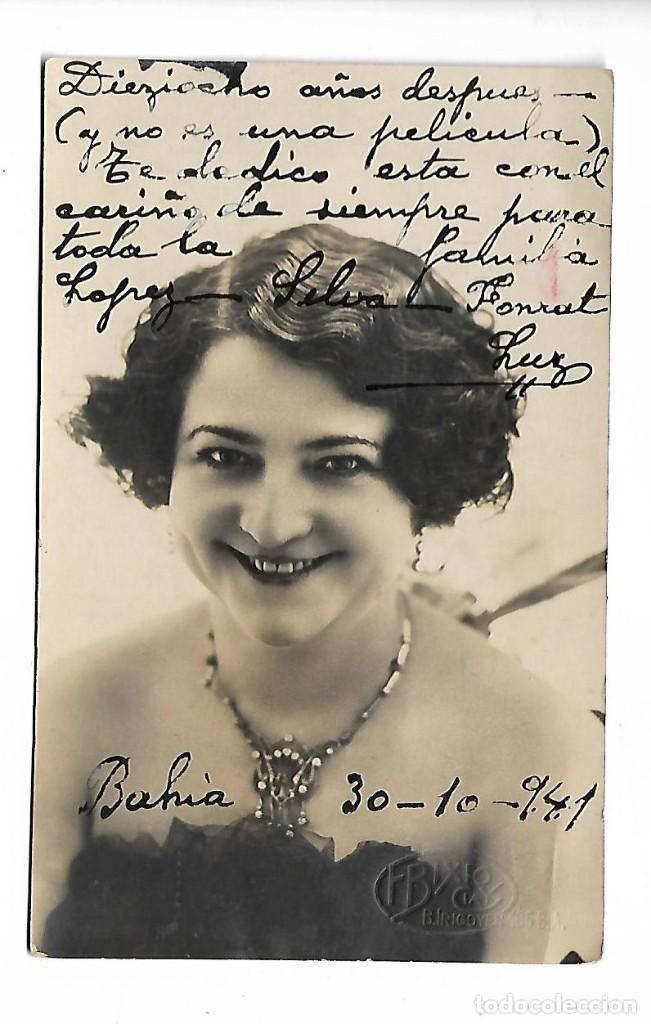 Dieziocho años despues —
(y no es una pelicula)
Te dedico esta con el
cariño de siempre para
toda la familia
Lopez — Silva — Fonrat
Luz
Bahia 30-10-941
FBIXIO
& Cia
B. IRIGOYEN B.A.
todocoleccion